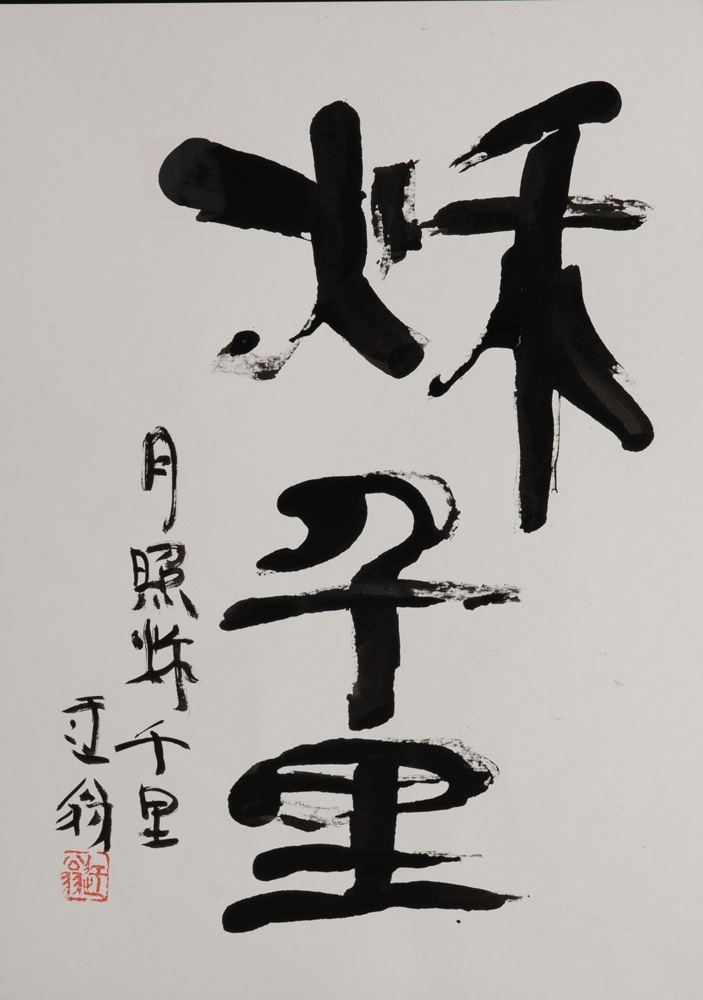 秌千里
月照秌千里
迂翁